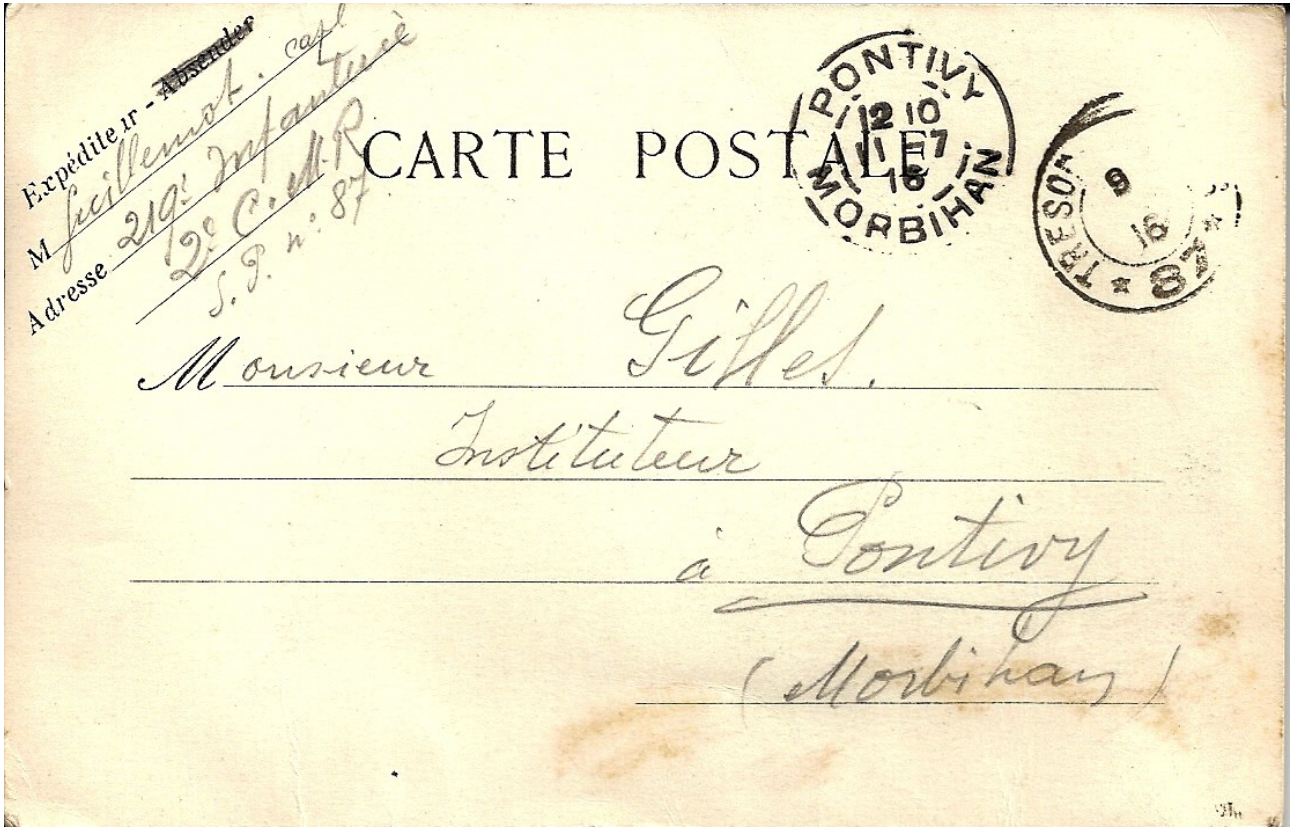 Expéditeur - Absender
M Guillemot. capl
Adresse 219e Infanterie
2e C. M. R
S. P. n° 87
CARTE POSTALE
PONTIVY
12 10
11 - 7
16
MORBIHAN
TRESOR
9
16
* 87 *
Monsieur Gilles.
Instituteur
à Pontivy
(Morbihan)